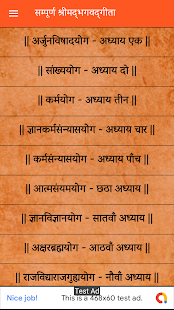 सम्पुर्ण श्रीमद्‍भगवद्‍गीता
|| अर्जुनविषादयोग - अध्याय एक ||
|| सांख्ययोग - अध्याय दो ||
|| कर्मयोग - अध्याय तीन ||
|| ज्ञानकर्मसंन्यासयोग - अध्याय चार ||
|| कर्मसंन्यासयोग - अध्याय पाँच ||
|| आत्मसंयमयोग - छठा अध्याय ||
|| ज्ञानविज्ञानयोग - सातवाँ अध्याय ||
|| अक्षरब्रह्मयोग - आठवाँ अध्याय ||
|| राजविद्याराजगुह्ययोग - नौवाँ अध्याय ||
Test Ad
Nice job! This is a 468x60 test ad.